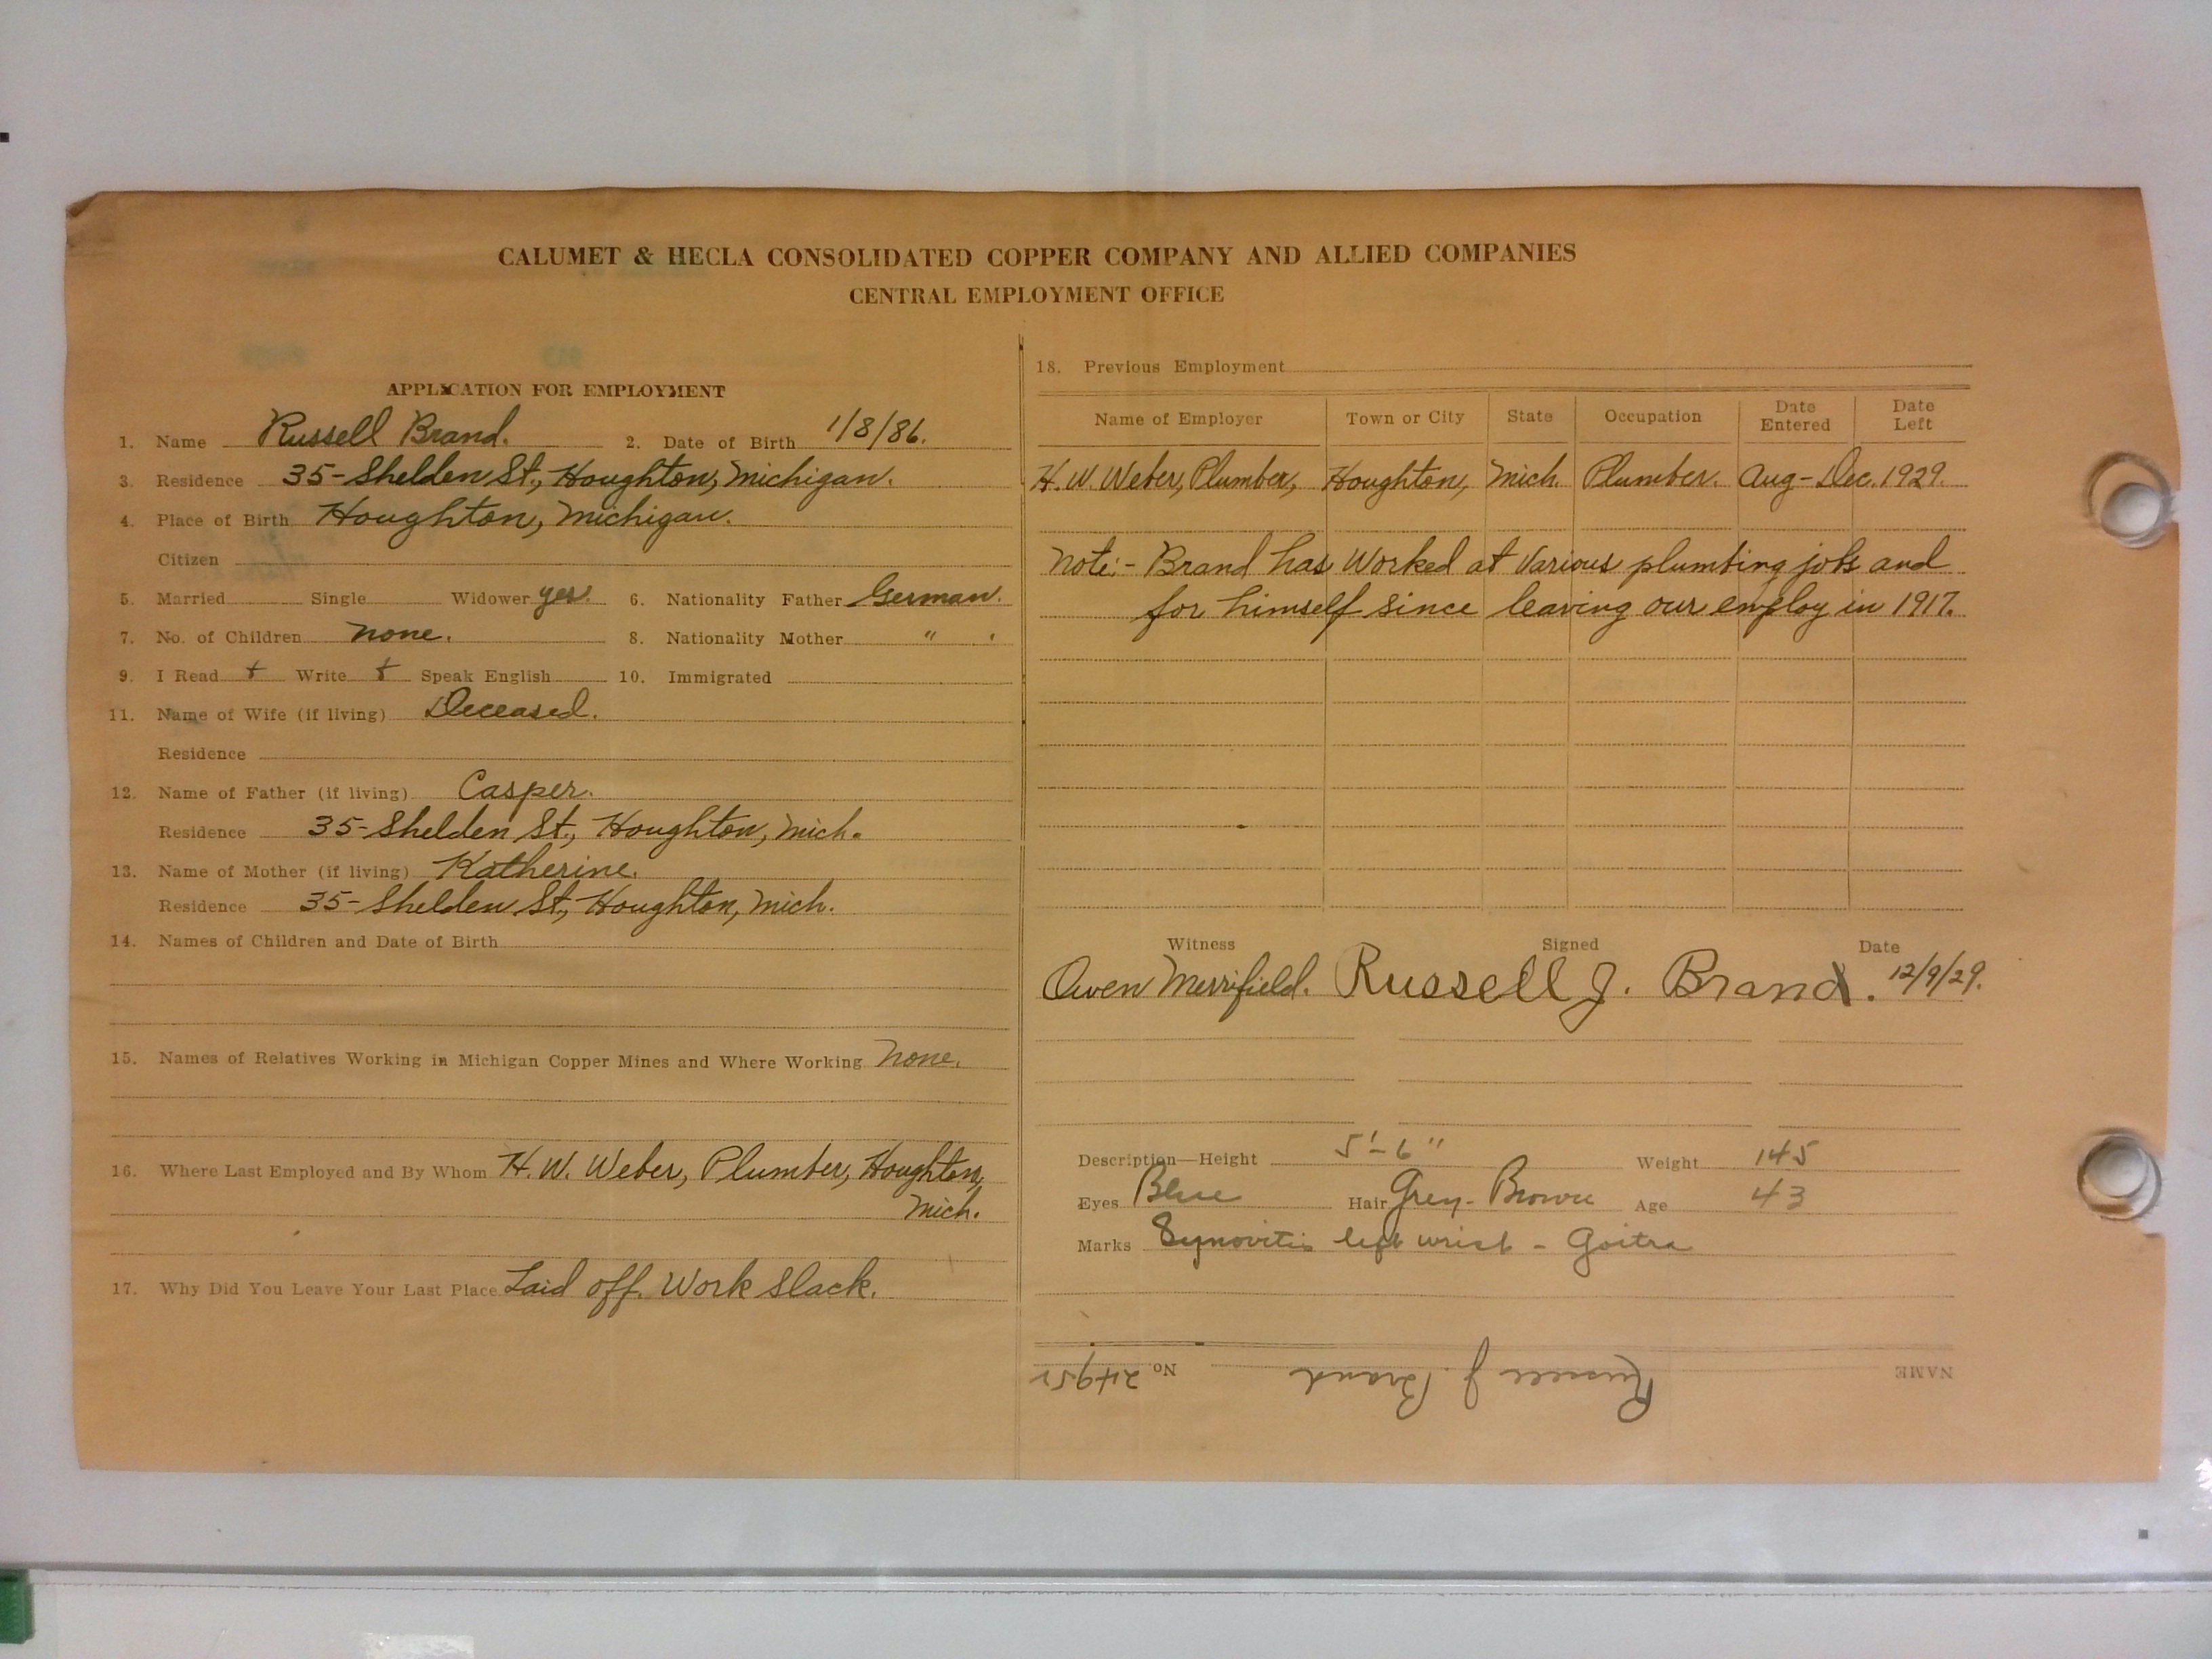 CALUMET & HECLA CONSOLIDATED COPPER COMPANY AND ALLIED COMPANIES
CENTRAL EMPLOYMENT OFFICE
APPLICATION FOR EMPLOYMENT
1. Name Russell Brand. 2. Date of Birth 1/8/86.
3. Residence 35-Shelden St., Houghton, Michigan.
4. Place of Birth Houghton, Michigan.
Citizen
5. Married Single Widower yes. 6. Nationality Father German.
7. No. of Children none. 8. Nationality Mother " .
9. I Read + Write + Speak English 10. Immigrated
11. Name of Wife (if living) Deceased.
Residence
12. Name of Father (if living) Casper.
Residence 35-Shelden St., Houghton, Mich.
13. Name of Mother (if living) Katherine.
Residence 35-Shelden St., Houghton, Mich.
14. Names of Children and Date of Birth
15. Names of Relatives Working in Michigan Copper Mines and Where Working none.
16. Where Last Employed and By Whom H. W. Weber, Plumber, Houghton,
Mich.
17. Why Did You Leave Your Last Place Laid off. Work slack.
18. Previous Employment
Name of Employer Town or City State Occupation Date Entered Date Left
H. W. Weber, Plumber, Houghton, Mich. Plumber. Aug-Dec. 1929.
Note:- Brand has Worked at Various plumbing jobs and
for himself since leaving our employ in 1917.
Witness Signed Date
Owen Merrifield. Russell J. Brand. 12/9/29.
Description—Height 5'-6" Weight 145
Eyes Blue Hair Grey-Brown Age 43
Marks Synovitis left wrist - Goitra
NAME Russell J. Brand No. 24952